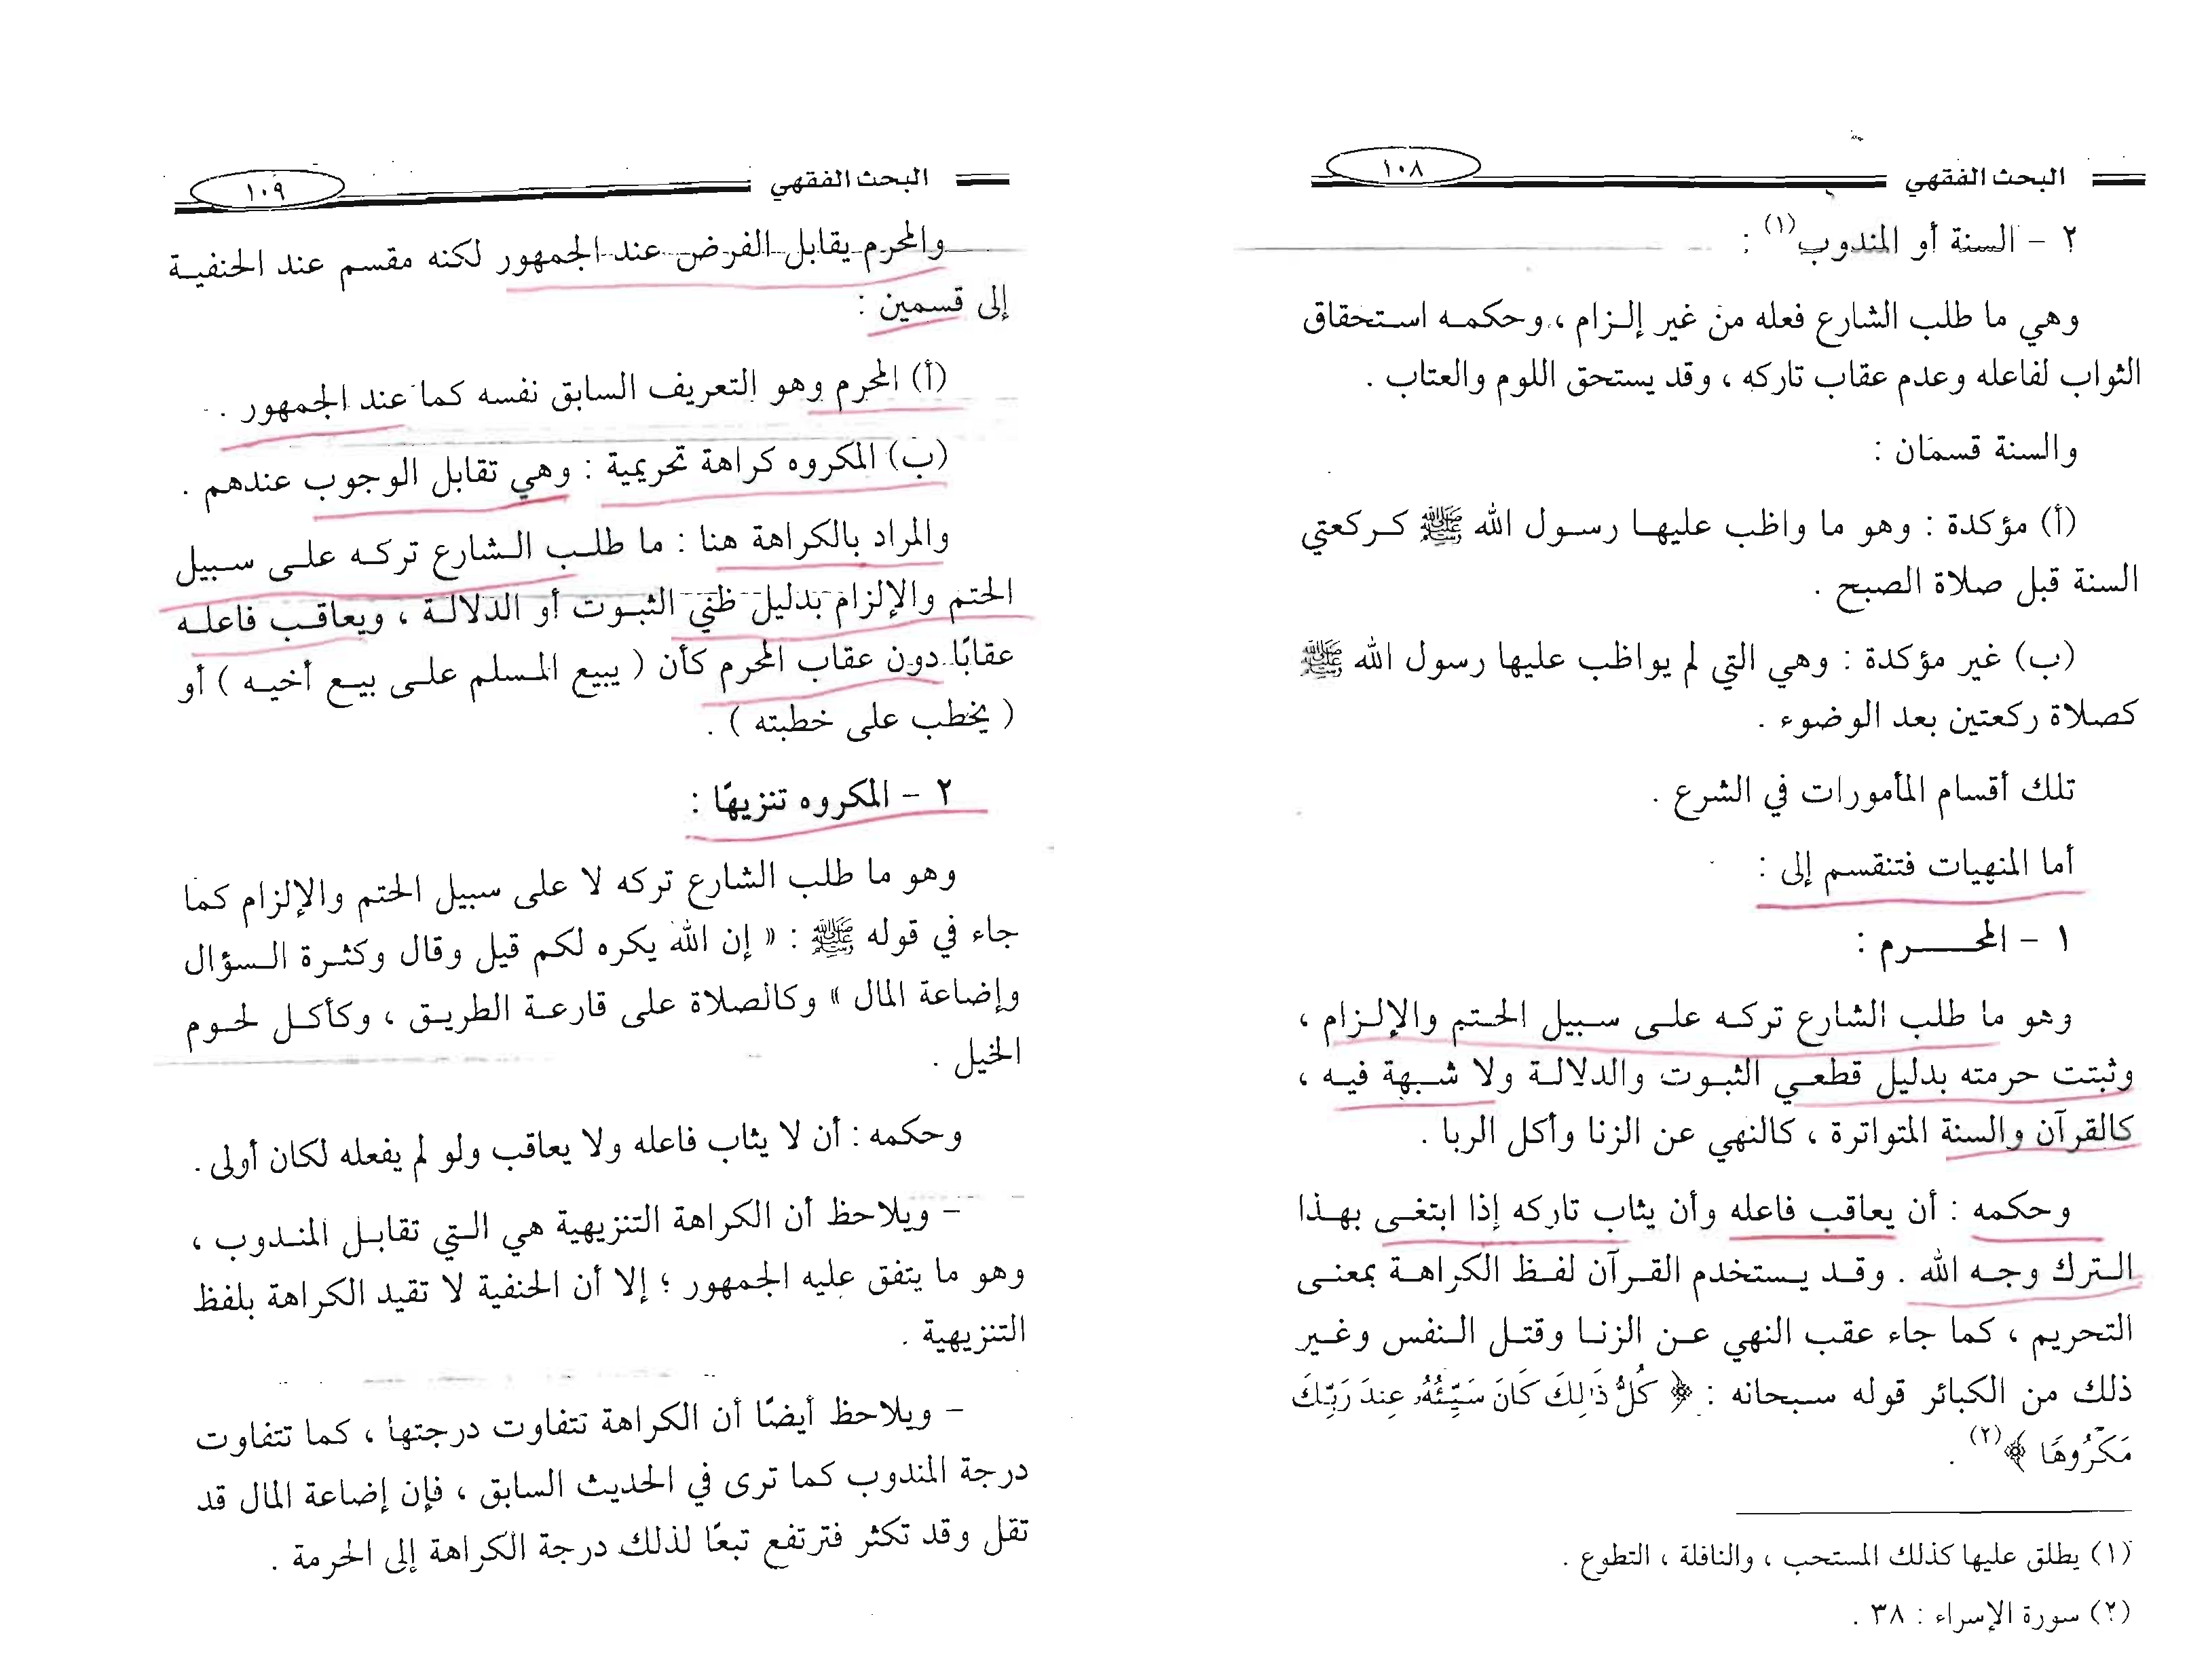 البحث الفقهي
١٠٨
٢ - السنة أو المندوب(١) :
وهي ما طلب الشارع فعله من غير إلـزام ، وحكمـه استـحقاق
الثواب لفاعله وعدم عقاب تاركه ، وقد يستحق اللوم والعتاب .
والسنة قسمان :
(أ) مؤكدة : وهو ما واظب عليهـا رسـول الله ﷺ كـركعتي
السنة قبل صلاة الصبح .
(ب) غير مؤكدة : وهي التي لم يواظب عليها رسول الله ﷺ
كصلاة ركعتين بعد الوضوء .
تلك أقسام المأمورات في الشرع .
أما المنهيات فتنقسم إلى :
١ - المحـــــرم :
وهو ما طلب الشارع تركـه علـى سـبيل الحـتم والإلـزام ،
وثبتت حرمته بدليل قطعـي الثبـوت والدلالـة ولا شـبهة فيـه ،
كالقرآن والسنة المتواترة ، كالنهي عن الزنا وأكل الربا .
وحكمه : أن يعاقب فاعله وأن يثاب تاركه إذا ابتغـى بهـذا
الـترك وجـه الله . وقـد يـستخدم القـرآن لفـظ الكراهـة بمعنـى
التحريم ، كمـا جاء عقب النهي عـن الزنـا وقتـل الـنفس وغـير
ذلك من الكبائر قوله سبحانه : ﴿ كُلُّ ذَٰلِكَ كَانَ سَيِّئُهُۥ عِندَ رَبِّكَ
مَكْرُوهًا ﴾(٢) .
(١) يطلق عليها كذلك المستحب ، والنافلة ، التطوع .
(٢) سورة الإسراء : ٣٨ .
البحث الفقهي
١٠٩
والمحرم يقابل الفرض عند الجمهور لكنه مقسم عند الحنفيـة
إلى قسمين :
(أ) المحرم وهو التعريف السابق نفسه كما عند الجمهور .
(ب) المكروه كراهة تحريمية : وهي تقابل الوجوب عندهم .
والمراد بالكراهة هنا : ما طلـب الـشارع تركـه علـى سـبيل
الحتم والإلزام بدليل ظني الثبـوت أو الدلالـة ، ويعاقـب فاعلـه
عقابًا دون عقاب المحرم كأن ( يبيع المـسلم علـى بيـع أخيـه ) أو
( يخطب على خطبته ) .
٢ - المكروه تنزيهًا :
وهو ما طلب الشارع تركه لا على سبيل الحتم والإلزام كما
جاء في قوله ﷺ : « إن الله يكره لكم قيل وقال وكثـرة الـسؤال
وإضاعة المال » وكالصلاة على قارعـة الطريـق ، وكأكـل لحـوم
الخيل .
وحكمه : أن لا يثاب فاعله ولا يعاقب ولو لم يفعله لكان أولى .
- ويلاحظ أن الكراهة التنزيهية هي الـتي تقابـل المنـدوب ،
وهو ما يتفق عليه الجمهور ؛ إلا أن الحنفية لا تقيد الكراهة بلفظ
التنزيهية .
- ويلاحظ أيضًا أن الكراهة تتفاوت درجتها ، كما تتفاوت
درجة المندوب كما ترى في الحديث السابق ، فإن إضاعة المال قد
تقل وقد تكثر فترتفع تبعًا لذلك درجة الكراهة إلى الحرمة .